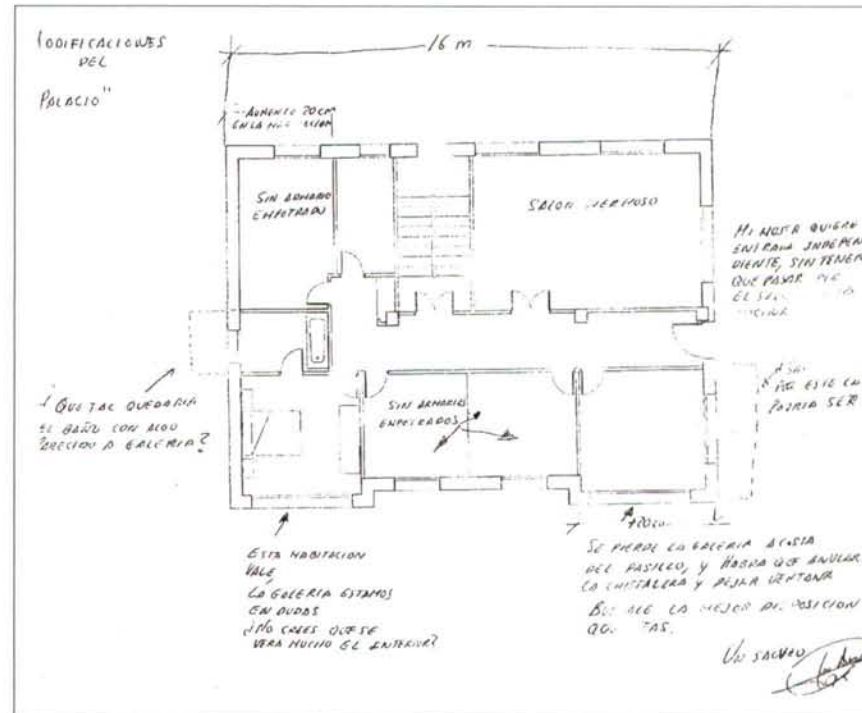 MODIFICACIONES
DEL
PALACIO"
16 m
AUMENTO 20 CM
EN LA
SIN ARMARIO
EMPOTRADO
SALON HERMOSO
QUIERE
ENTRADA INDEPEN
DIENTE, SIN TENER
QUE PASAR POR
EL
¿QUE TAL QUEDARIA
EL BAÑO CON ALGO
PARECIDO A GALERIA?
SIN ARMARIOS
EMPOTRADOS
POR ESTE
PODRIA SER
+20
ESTA HABITACION
VALE
LA GALERIA ESTAMOS
EN DUDAS
¿NO CREES QUE SE
VERA MUCHO EL INTERIOR?
SE PIERDE LA GALERIA A COSTA
DEL PASILLO, Y HABRA QUE ANULAR
LA CRISTALERA Y DEJAR VENTANA
LA MEJOR DISPOSICION
UN SALUDO